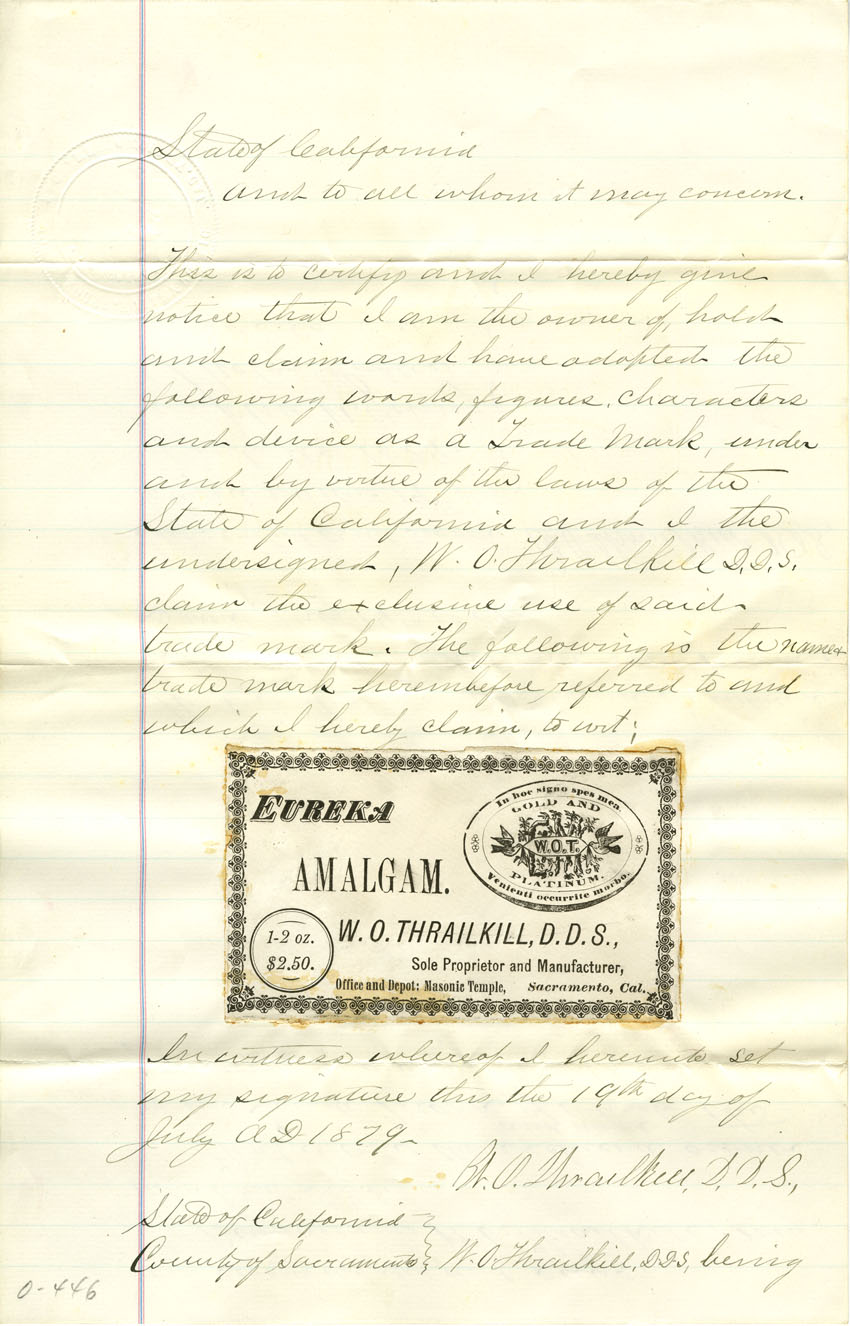 State of California
and to all whom it may concern.
This is to certify and I hereby give
notice that I am the owner of, hold
and claim and have adopted the
following words, figures, characters
and device as a Trade Mark, under
and by virtue of the laws of the
State of California and I the
undersigned, W. O. Thrailkill D.D.S.
claim the exclusive use of said
trade mark. The following is the name &
trade mark hereinbefore referred to and
which I hereby claim, to wit;
EUREKA
AMALGAM.
In hoc signo spes mea
GOLD AND
W.O.T.
PLATINUM.
Venienti occurrite morbo.
1-2 oz.
$2.50.
W. O. THRAILKILL, D.D.S.,
Sole Proprietor and Manufacturer,
Office and Depot: Masonic Temple, Sacramento, Cal.
In witness whereof I hereunto set
my signature this the 19th day of
July A D 1879
W. O. Thrailkill, D. D. S.,
State of California
County of Sacramento } W. O. Thrailkill, D.D.S, being
0-446